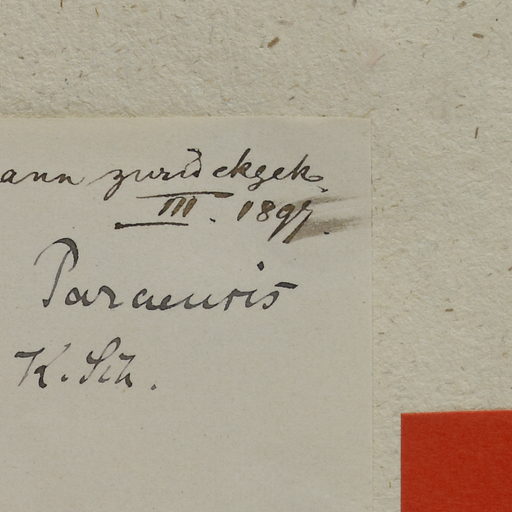 ann zurückgek.
III. 1897.
Paraensis
K. Sch.